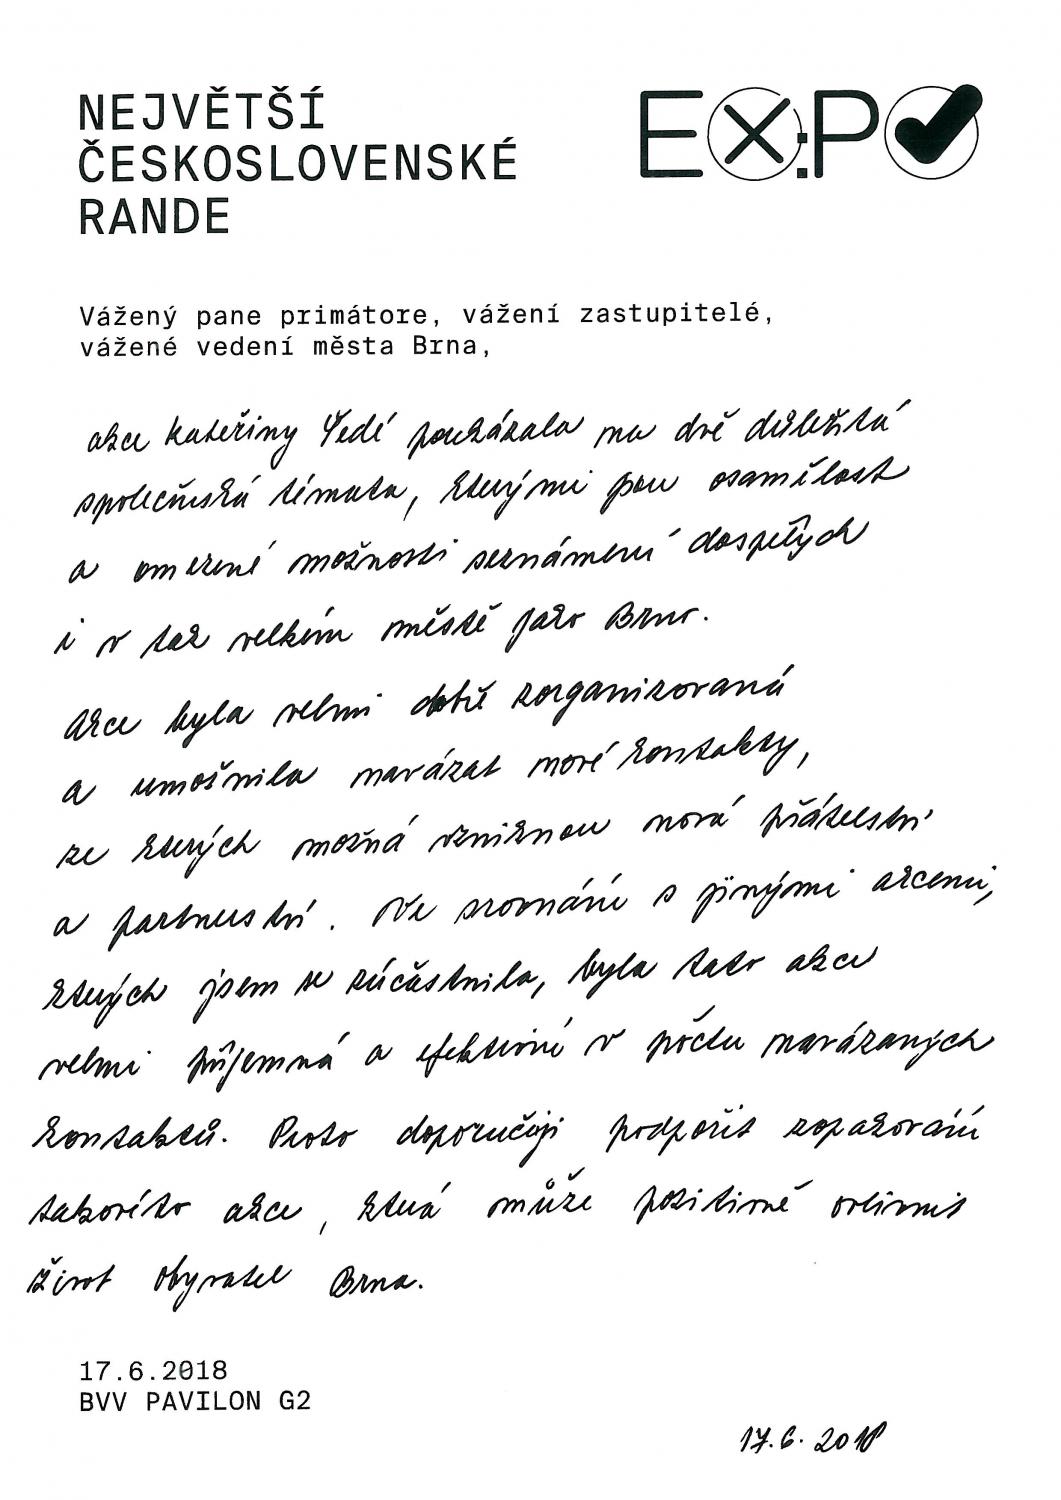 NEJVĚTŠÍ
ČESKOSLOVENSKÉ
RANDE
EX:P✔
Vážený pane primátore, vážení zastupitelé,
vážené vedení města Brna,
akce Kateřiny Šedé poukázala na dvě důležitá
společenská témata, kterými jsou osamělost
a omezené možnosti seznámení dospělých
i v tak velkém městě jako Brno.
Akce byla velmi dobře zorganizovaná
a umožnila navázat nové kontakty,
ze kterých možná vzniknou nová přátelství
a partnerství. Ve srovnání s jinými akcemi,
kterých jsem se zúčastnila, byla tato akce
velmi příjemná a efektivní v počtu navázaných
kontaktů. Proto doporučuji podpořit zopakování
takovéto akce, která může pozitivně ovlivnit
život obyvatel Brna.
17.6.2018
BVV PAVILON G2
17.6.2018